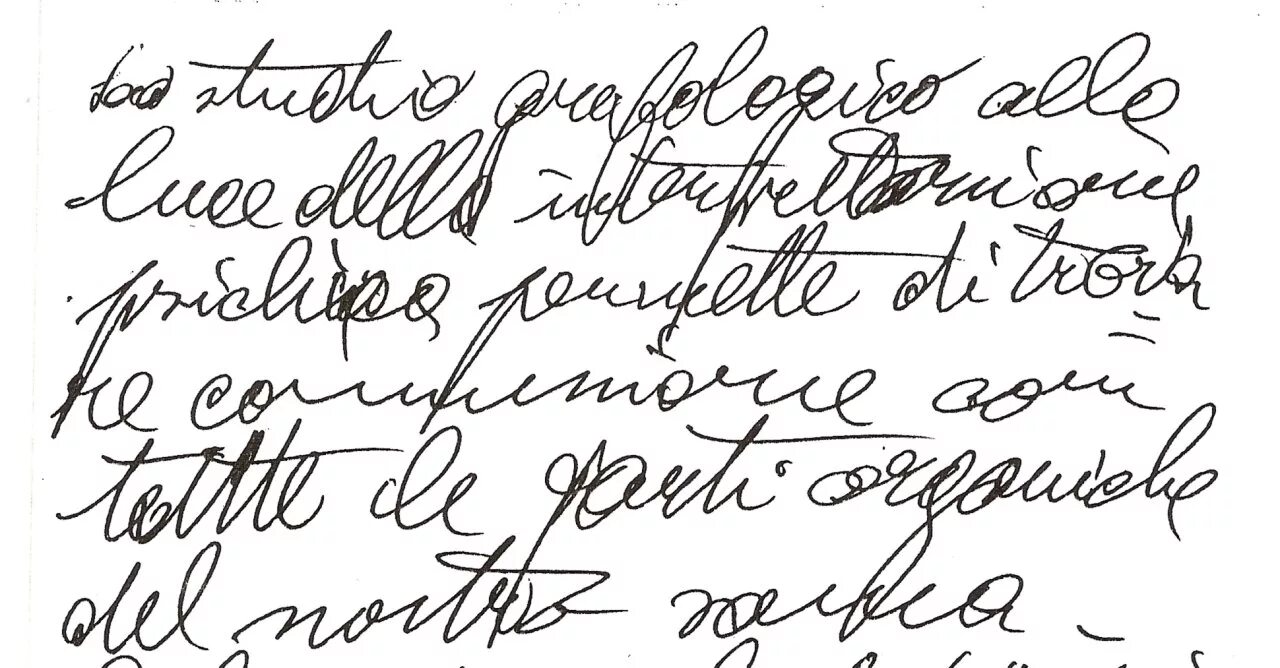 studio grafologico alla
luce della interpretazione
psichica permette di trova
re comunione con
tutte le parti organiche
del nostro